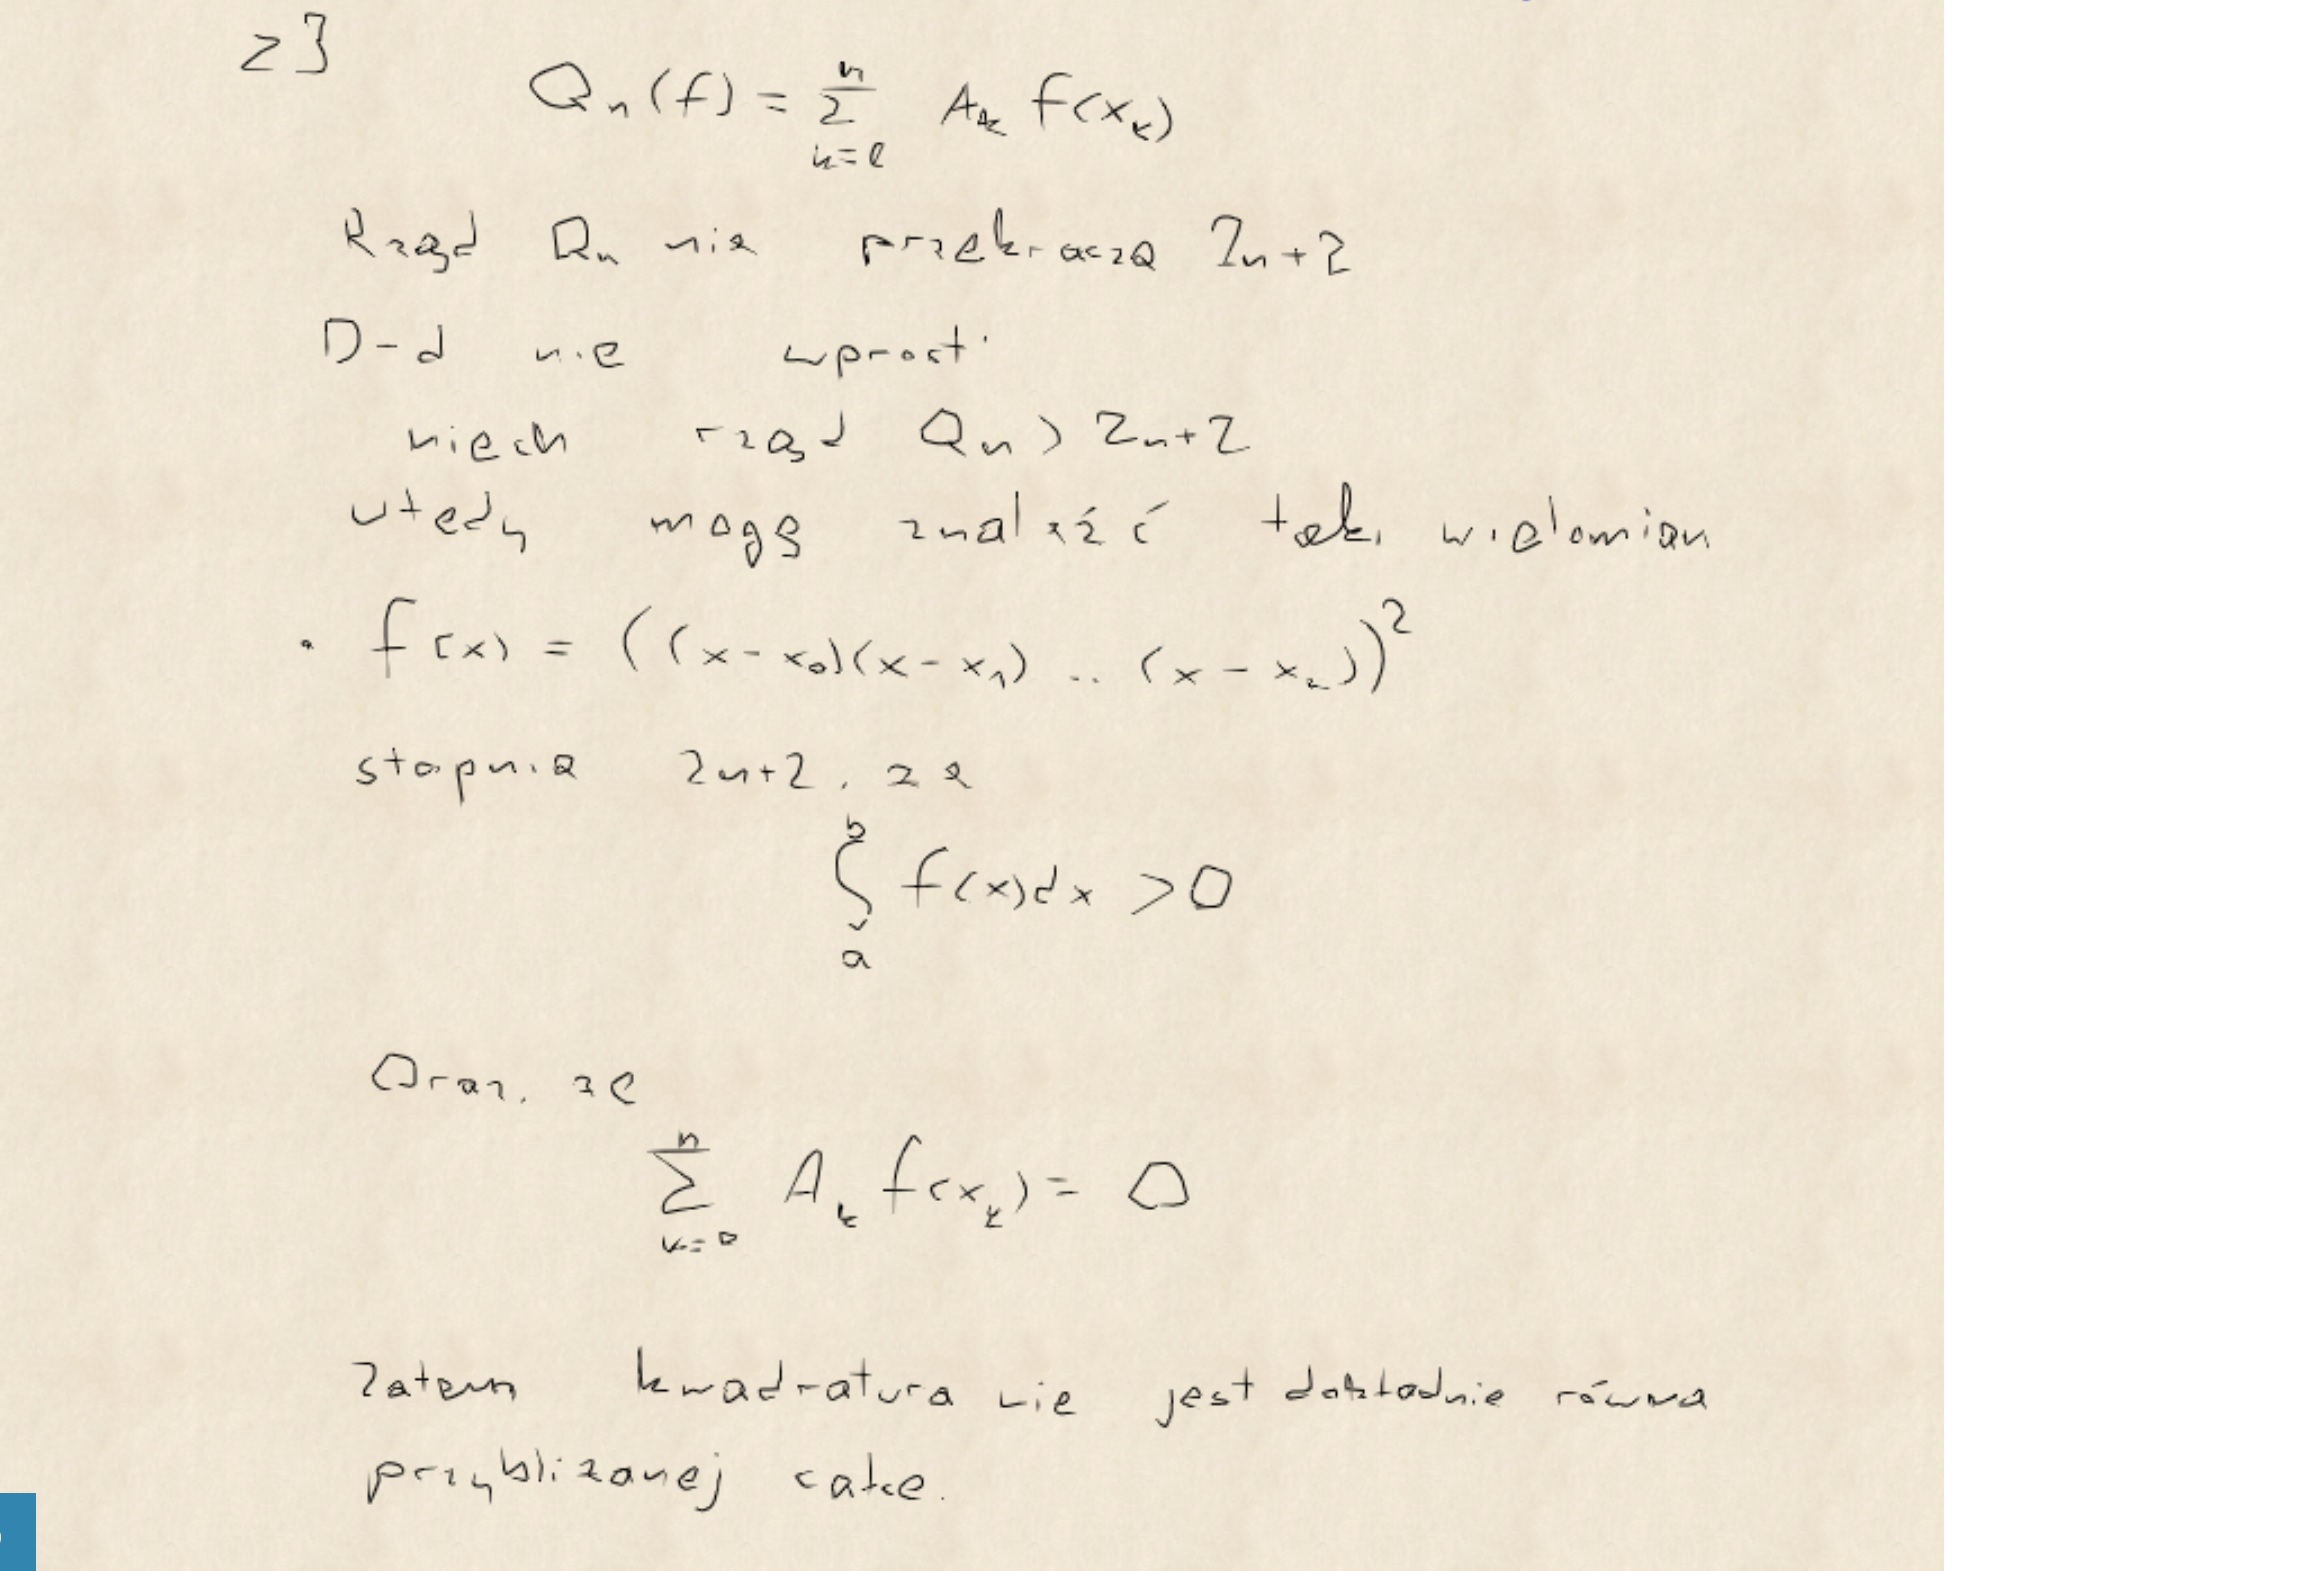 z3
Qn(f) = n∑k=0 Ak f(xk)
Rząd Qn nie przekracza 2n+2
D-d nie wprost:
niech rząd Qn > 2n+2
wtedy mogę znaleźć taki wielomian
• f(x) = ((x-x0)(x-x1) .. (x-xk))²
stopnia 2n+2, że
b∫a f(x)dx > 0
Oraz, że
n∑k=0 Ak f(xk) = 0
Zatem kwadratura nie jest dokładnie równa
przybliżanej całce.